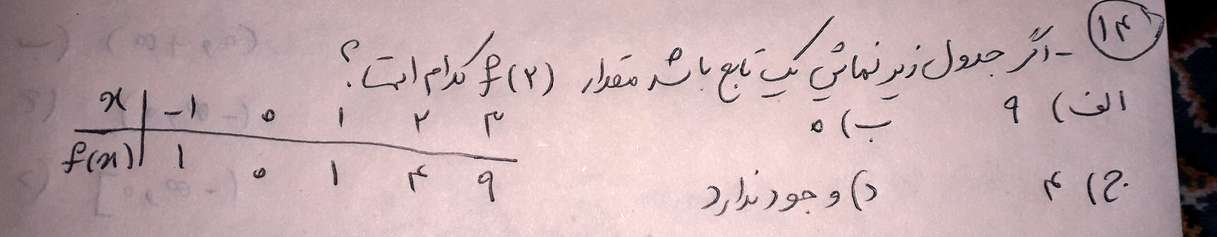 ۱۴ - اگر جدول زیر نمایش یک تابع باشد مقدار f(۲) کدام است؟
الف) ۹ ب) ۰
ج) ۴ د) وجود ندارد
x | -۱ ۰ ۱ ۲ ۳
f(x) | ۱ ۰ ۱ ۴ ۹